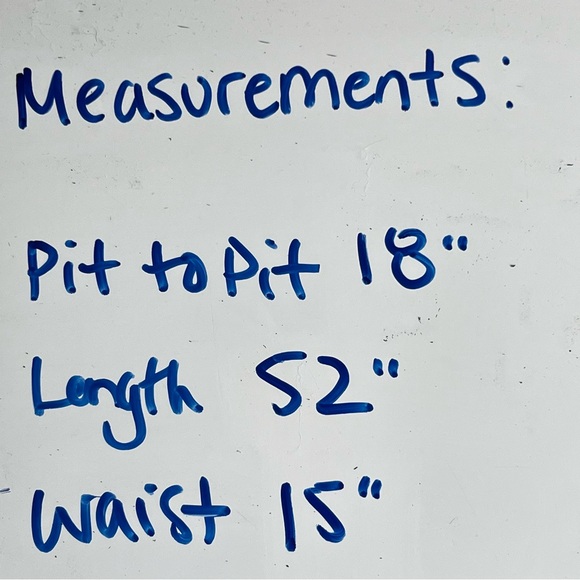 Measurements:
Pit to Pit 18"
Length 52"
Waist 15"